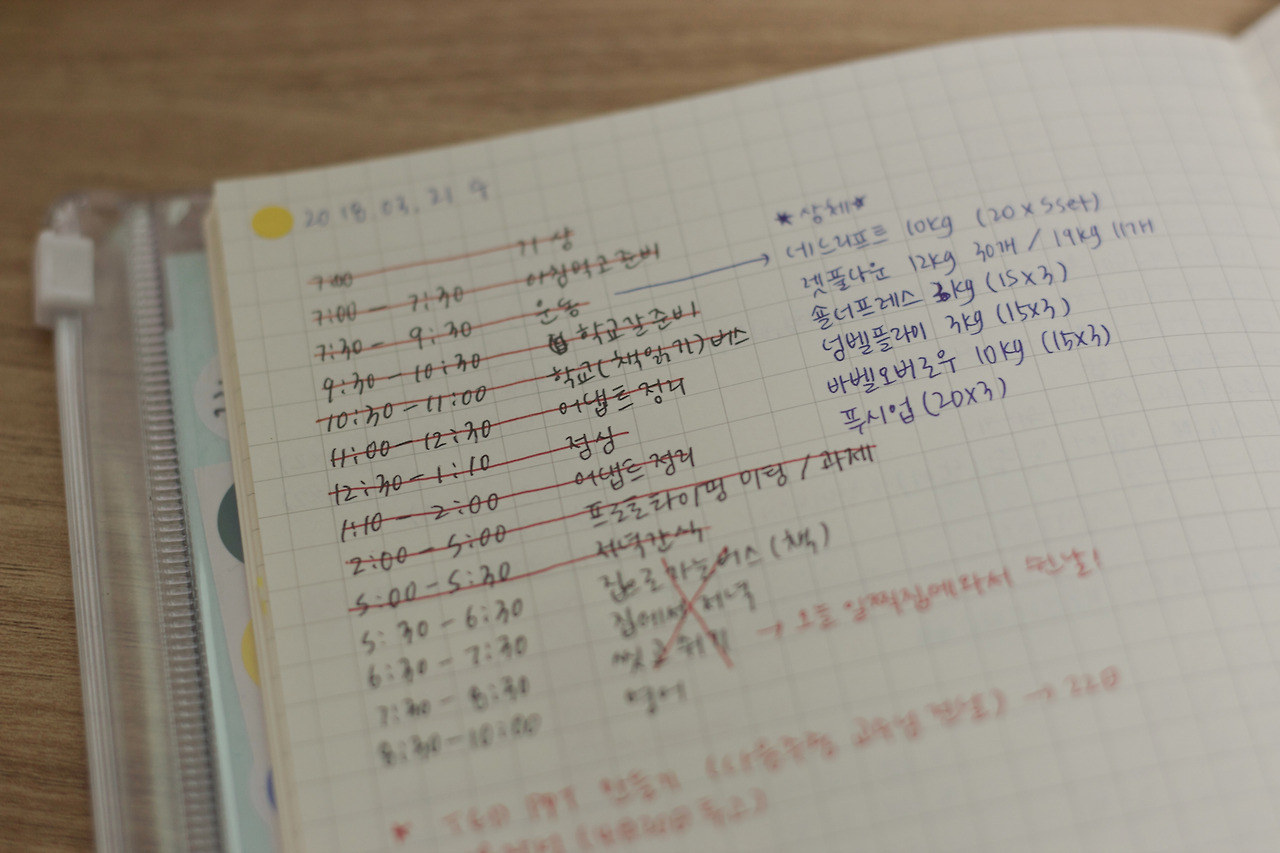 2018.03.21 수
7:00 기상
7:00 - 7:30 아침먹고 준비
7:30 - 9:30 운동
9:30 - 10:30 학교갈준비
10:30 - 11:00 학교(책읽기) 버스
11:00 - 12:30 어댑트 정리
12:30 - 1:10 점심
1:10 - 2:00 어댑트 정리
2:00 - 5:00 프로토타이핑 미팅 / 과제
5:00 - 5:30 저녁간식
5:30 - 6:30 집으로 가는 버스 (책)
6:30 - 7:30 집에서 저녁
7:30 - 8:30 씻고 쉬기
8:30 - 10:00 영어
→ 오늘 일찍집에와서 쉰날!
★상체★
데드리프트 10kg (20×5set)
렛풀다운 12kg 30개 / 19kg 11개
숄더프레스 3kg (15×3)
덤벨플라이 3kg (15×3)
바벨오버로우 10kg (15×3)
푸시업 (20×3)
★ PPT 만들기